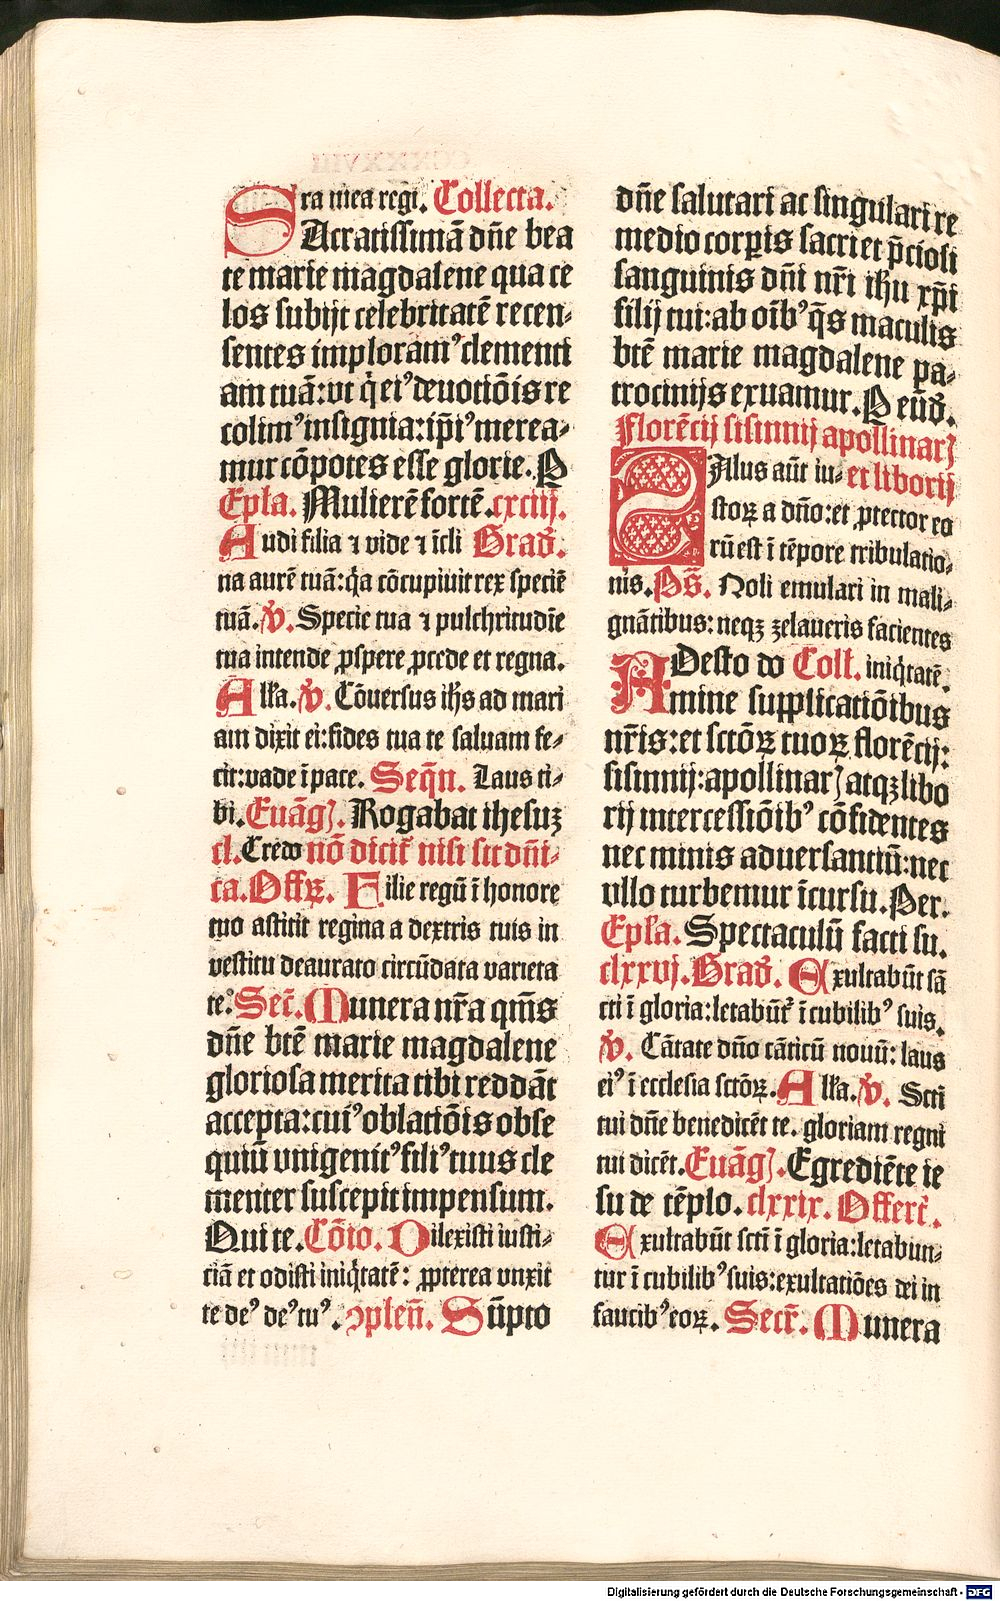 ra mea regi. Collecta.
SAcratissimā dn̄e bea
te marie magdalene qua ce
los subijt celebritatē recen⸗
sentes imploramꝰ clementi
am tuā: vt q̇ eiꝰ deuotiōis re
colimꝰ insignia: ip̄iꝰ merea⸗
mur cōpotes esse glorie. P
Ep̄la. Mulierē fortē. cxciij.
Audi filia ⁊ vide ⁊ īcli Grad̄.
na aurē tuā: q̇a cōcupiuit rex speciē
tuā. V̾. Specie tua ⁊ pulchritudīe
tua intende ꝓspere ꝓcede et regna.
All̄a. V̾. Cōuersus ih̄s ad mari
am dixit ei: fides tua te saluam fe⸗
cit: vade ī pace. Seq̄n. Laus ti⸗
bi. Euāgꝭ. Rogabat ihesuꝫ
cl. Credo nō dicit̉ nisi sit dn̄i⸗
ca. Offꝝ. Filie regū ī honore
tuo astitit regina a dextris tuis in
vestitu deaurato circūdata varieta
te. Sec̄. Munera nr̄a qm̄s
dn̄e btē marie magdalene
gloriosa merita tibi reddāt
accepta: cuiꝰ oblatiōis obse
quiū vnigenitꝰ filiꝰ tuus cle
menter suscepit impensum.
Qui te. Cōio. Dilexisti iusti⸗
ciā et odisti iniq̇tatē: ꝓpterea vnxit
te deꝰ deꝰ tuꝰ. ꝯplen̄. Sūpto
dn̄e salutari ac singulari re
medio corꝑis sacri et p̄ciosi
sanguinis dn̄i nr̄i ih̄u xp̄i
filij tui: ab oībꝰ q̄s maculis
btē marie magdalene pa⸗
trocinijs exuamur. P eūd̄.
Florēcij sisinnij apollinarꝭ
SAlus aūt iu⸗ et liborij
stoꝝ a dn̄o: et ꝓtector eo
rū est ī tēpore tribulatio⸗
nis. Ps̄. Noli emulari in mali⸗
gnātibus: neqꝫ zelaueris facientes
ADesto do Coll̄. iniq̇tatē.
mine supplicatiōibus
nr̄is: et sctōꝝ tuoꝝ florēcij:
sisinnij: apollinarꝭ atqꝫ libo
rij intercessiōibꝰ cōfidentes
nec minis aduersantiū: nec
vllo turbemur īcursu. Per.
Ep̄la. Spectaculū facti su.
clxxvj. Grad̄. Exultabūt sā
cti ī gloria: letabūt̉ ī cubilibꝰ suis.
V̾. Cātate dn̄o cāticū nouū: laus
eiꝰ ī ecclesia sctōꝝ. All̄a. V̾. Scti
tui dn̄e benedicēt te. gloriam regni
tui dicēt. Euāgꝭ. Egrediēte ie
su de tēplo. clxxix. Offert̄.
Exultabūt sctī ī gloria: letabun⸗
tur ī cubilibꝰ suis: exultatiōes dei in
faucibꝰ eoꝝ. Secr̄. Munera
Digitalisierung gefördert durch die Deutsche Forschungsgemeinschaft - DFG